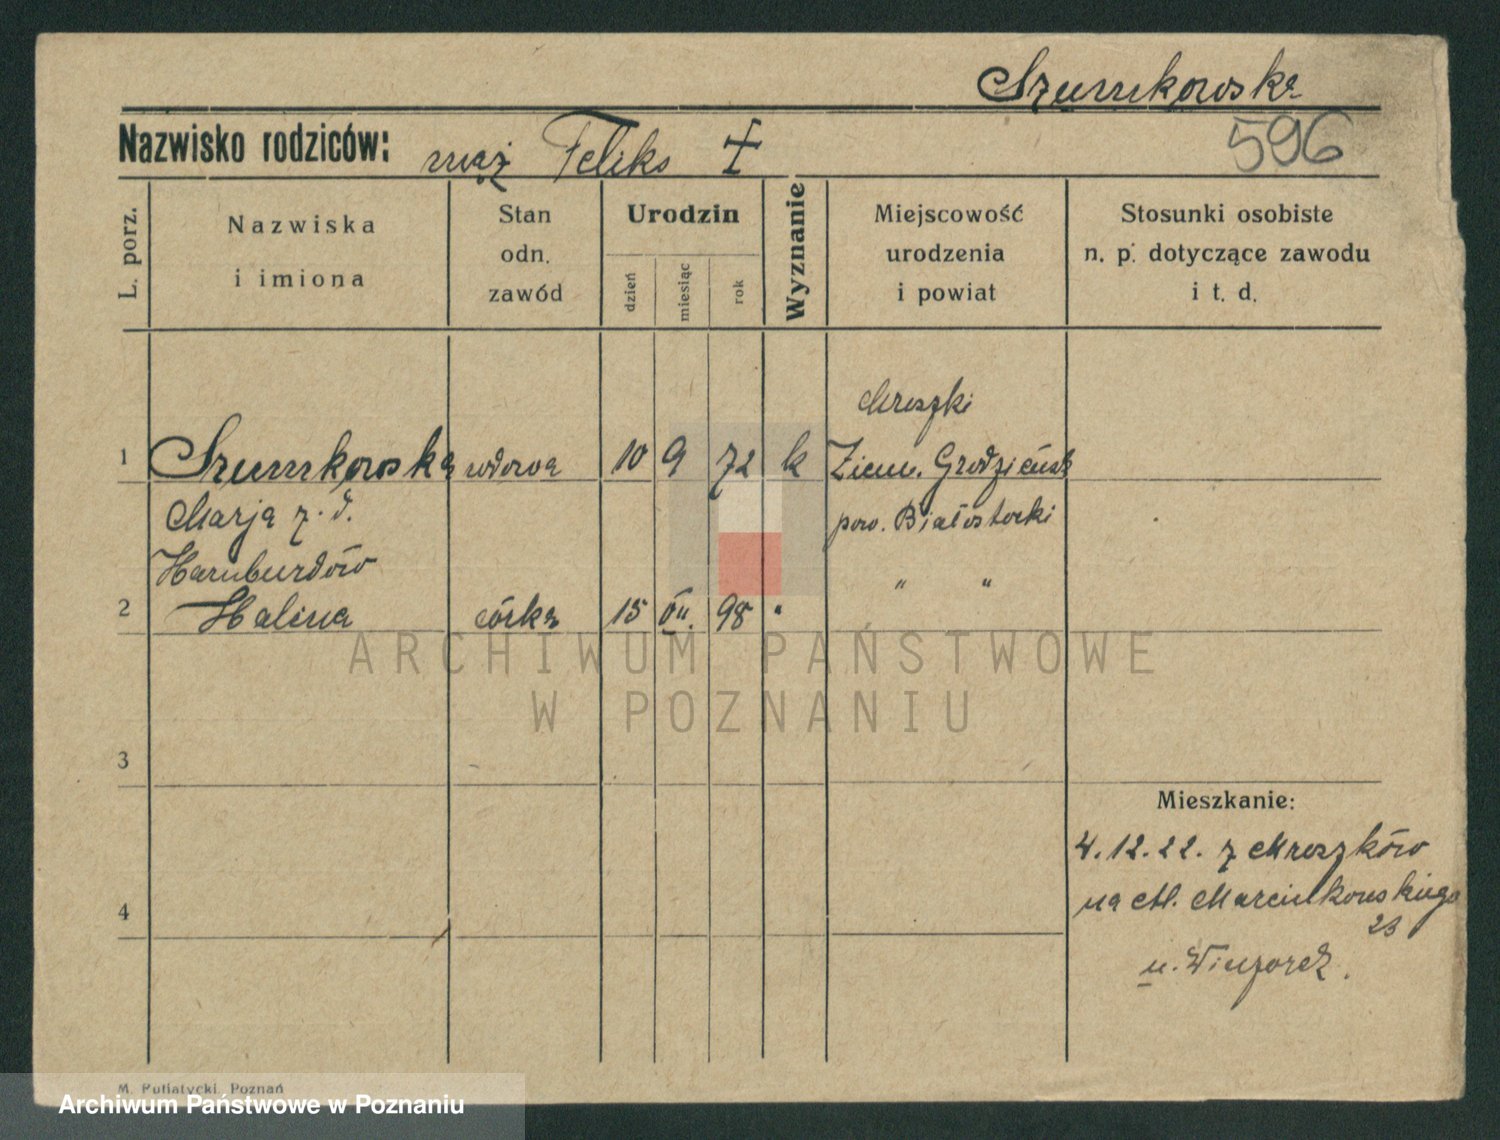 Szumkowska
Nazwisko rodziców: mąż Feliks
596
L. porz.
Nazwiska
i imiona
Stan
odn.
zawód
Urodzin
dzień
miesiąc
rok
Wyznanie
Miejscowość
urodzenia
i powiat
Stosunki osobiste
n. p. dotyczące zawodu
i t. d.
Mroszki
1 Szumkowska wdowa 10 9 72 k Ziem. Grodzieńsk
Marja z. d. pow. Białostocki
Hamburdów " "
2 Halina córka 15 VII. 98 "
ARCHIWUM PAŃSTWOWE
W POZNANIU
3
Mieszkanie:
4.12.22. z Mroszków
na Al. Marcinkowskiego
23
4
u.
M. Putiatycki, Poznań
Archiwum Państwowe w Poznaniu